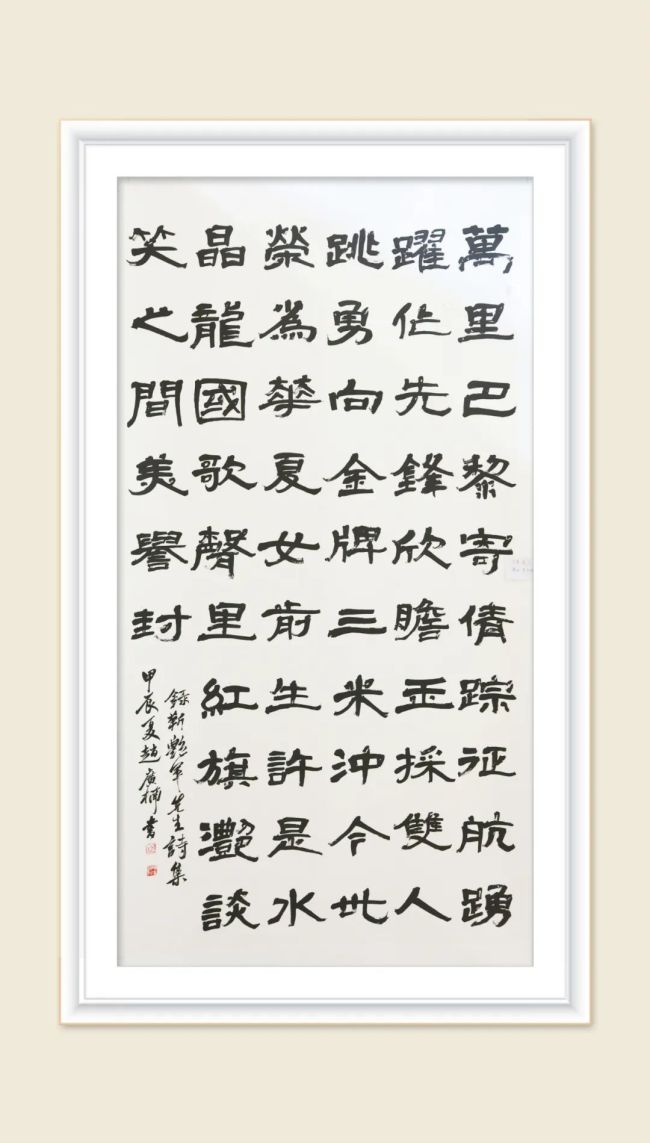 萬里巴黎寄倩踪征航踴
躍作先鋒欣瞻玉採雙人
跳勇向金牌三米沖今世
榮為華夏女前生許是水
晶龍國歌聲里紅旗灩談
笑之間美譽封
錄靳艷军先生詩集
甲辰夏趙廣楠書